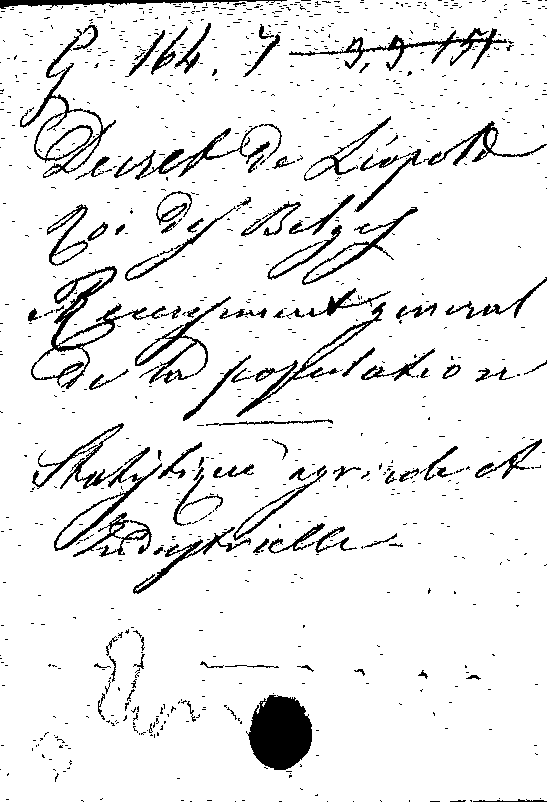 G. 164. 7 — 3.3.151.
Decret de Léopold
Roi des Belges
Recensement general
de la population
Statistique agricole et
Industrielle